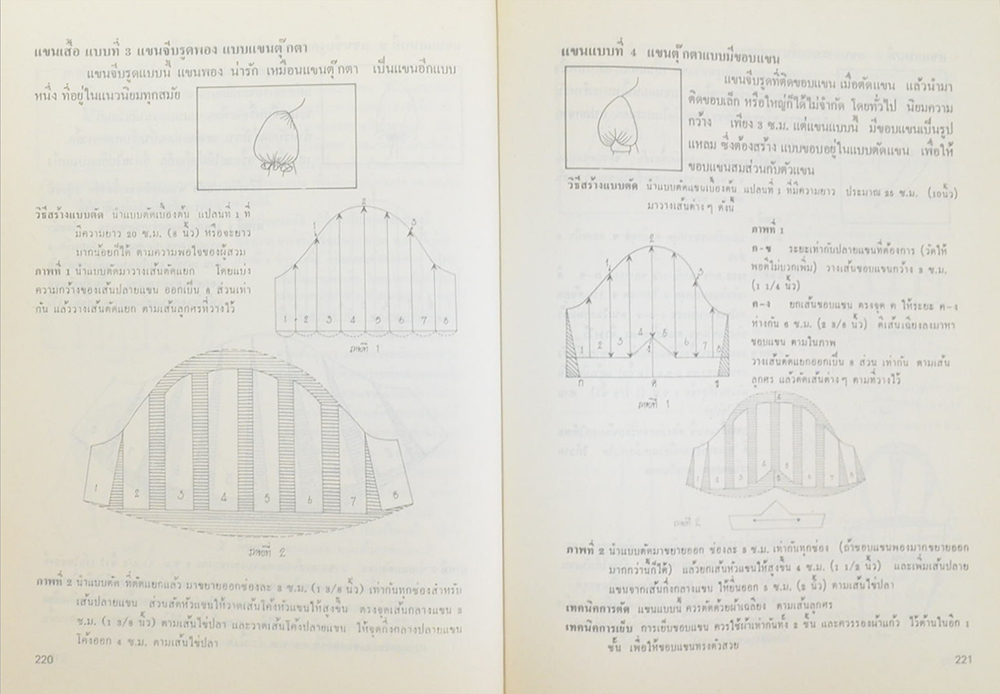 แขนเสื้อ แบบที่ 3 แขนจีบรูดพอง แบบแขนตุ๊กตา
แขนจีบรูดแบบนี้ แขนพอง น่ารัก เหมือนแขนตุ๊กตา เป็นแขนอีกแบบ
หนึ่ง ที่อยู่ในแนวนิยมทุกสมัย
วิธีสร้างแบบตัด นำแบบตัดเบื้องต้น แปลนที่ 1 ที่
มีความยาว 20 ซ.ม. (8 นิ้ว) หรือจะยาว
มากน้อยก็ได้ ตามความพอใจของผู้สวม
ภาพที่ 1 นำแบบตัดมาวางเส้นตัดแยก โดยแบ่ง
ความกว้างของเส้นปลายแขน ออกเป็น 8 ส่วนเท่า
กัน แล้ววางเส้นตัดแยก ตามเส้นลูกศรที่วางไว้
1 2 3
1 2 3 4 5 6 7 8
ภาพที่ 1
1 2 3 4 5 6 7 8
ภาพที่ 2
ภาพที่ 2 นำแบบตัด ที่ตัดแยกแล้ว มาขยายออกช่องละ 3 ซ.ม. (1 3/8 นิ้ว) เท่ากันทุกช่องสำหรับ
เส้นปลายแขน ส่วนตัดหัวแขนให้วาดเส้นโค้งหัวแขนให้สูงขึ้น ตรงจุดเส้นกลางแขน 3
ซ.ม. (1 3/8 นิ้ว) ตามเส้นไข่ปลา และวาดเส้นโค้งปลายแขน ให้จุดกึ่งกลางปลายแขน
โค้งออก 4 ซ.ม. ตามเส้นไข่ปลา
220
แขนแบบที่ 4 แขนตุ๊กตาแบบมีขอบแขน
แขนจีบรูดที่ติดขอบแขน เมื่อตัดแขน แล้วนำมา
ติดขอบเล็ก หรือใหญ่ก็ได้ไม่จำกัด โดยทั่วไป นิยมความ
กว้าง เพียง 3 ซ.ม. แต่แขนแบบนี้ มีขอบแขนเป็นรูป
แหลม ซึ่งต้องสร้าง แบบขอบอยู่ในแบบตัดแขน เพื่อให้
ขอบแขนสมส่วนกับตัวแขน
วิธีสร้างแบบตัด นำแบบตัดแขนเบื้องต้น แปลนที่ 1 ที่มีความยาว ประมาณ 25 ซ.ม. (10นิ้ว)
มาวางเส้นต่าง ๆ ดังนี้
ภาพที่ 1
ค-ข ระยะเท่ากับปลายแขนที่ต้องการ (วัดให้
พอดีไม่บวกเพิ่ม) วางเส้นขอบแขนกว้าง 3 ซ.ม.
(1 1/4 นิ้ว)
ค-ง ยกเส้นขอบแขน ตรงจุด ค ให้ระยะ ค-ง
ห่างกัน 6 ซ.ม. (2 3/8 นิ้ว) ตีเส้นเฉียงลงมาหา
ขอบแขน ตามในภาพ
วางเส้นตัดแยกออกเป็น 8 ส่วน เท่ากัน ตามเส้น
ลูกศร แล้วตัดเส้นต่าง ๆ ตามที่วางไว้
1 2 3
1 2 3 4 5 6 7 8
ก ค ข
ภาพที่ 1
ภาพที่ 2 นำแบบตัดมาขยายออก ช่องละ 3 ซ.ม. เท่ากันทุกช่อง (ถ้าชอบแขนพองมากขยายออก
มากกว่านี้ก็ได้) แล้วยกเส้นหัวแขนให้สูงขึ้น 4 ซ.ม. (1 1/2 นิ้ว) และเพิ่มเส้นปลาย
แขนจากเส้นกึ่งกลางแขน ให้ยื่นออก 5 ซ.ม. (2 นิ้ว) ตามเส้นไข่ปลา
เทคนิคการตัด แขนแบบนี้ ควรตัดด้วยผ้าเฉลียง ตามเส้นลูกศร
เทคนิคการเย็บ การเย็บขอบแขน ควรใช้ผ้าเท่ากันทั้ง 2 ชั้น และควรรองผ้าแก้ว ไว้ด้านในอีก 1
ชั้น เพื่อให้ขอบแขนทรงตัวสวย
221